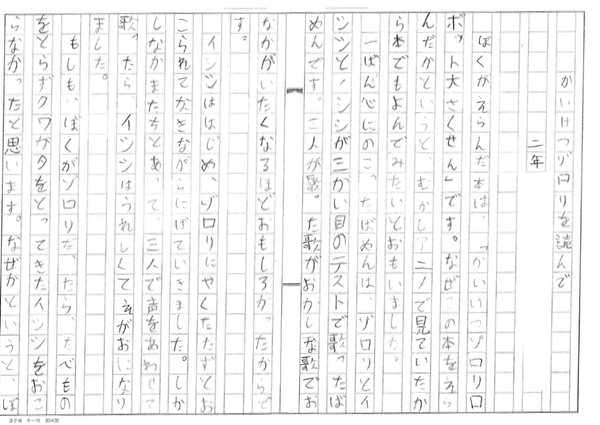 かいけつゾロリを読んで
二年
ぼくがえらんだ本は、「かいけつゾロリロ
ボット大さくせん」です。なぜこの本をえら
んだかというと、むかしアニメで見ていたか
ら本でもよんでみたいとおもいました。
一ばん心にのこったばめんは、ゾロリとイ
シシとノシシが三かい目のテストで歌ったば
めんです。三人が歌った歌がおかしな歌でお
なかがいたくなるほどおもしろかったからで
す。
イシシははじめ、ゾロリにやくたたずとお
こられてなきながらにげていきました。しか
しなかまたちとあって、三人で声をあわせて
歌ったら、イシシはうれしくてえがおになり
ました。
もしも、ぼくがゾロリだったら、たべもの
をとらずクワガタをとってきたイシシをおこ
らなかったと思います。なぜかというと、ぼ
コクヨ ケー10 20×20